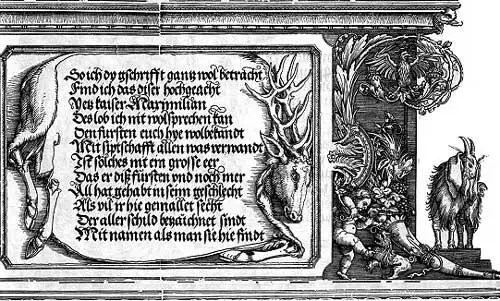 So ich dy gschrifft gantz wol betracht
Find ich das diser hochgeacht
Vetz kaiser Maximilian
Des lob ich nit wolsprechen kan
Den fursten euch hye wolbekandt
Mit sipschafft allen was verwandt
Ist solches nit ein grosse eer
Das er diß fürsten und noch mer
All hat gehabt in seinn geschlecht
Als vil ir hie gemallet secht
Der aller schild bezaichnet sindt
Mit namen als man sie hie findt